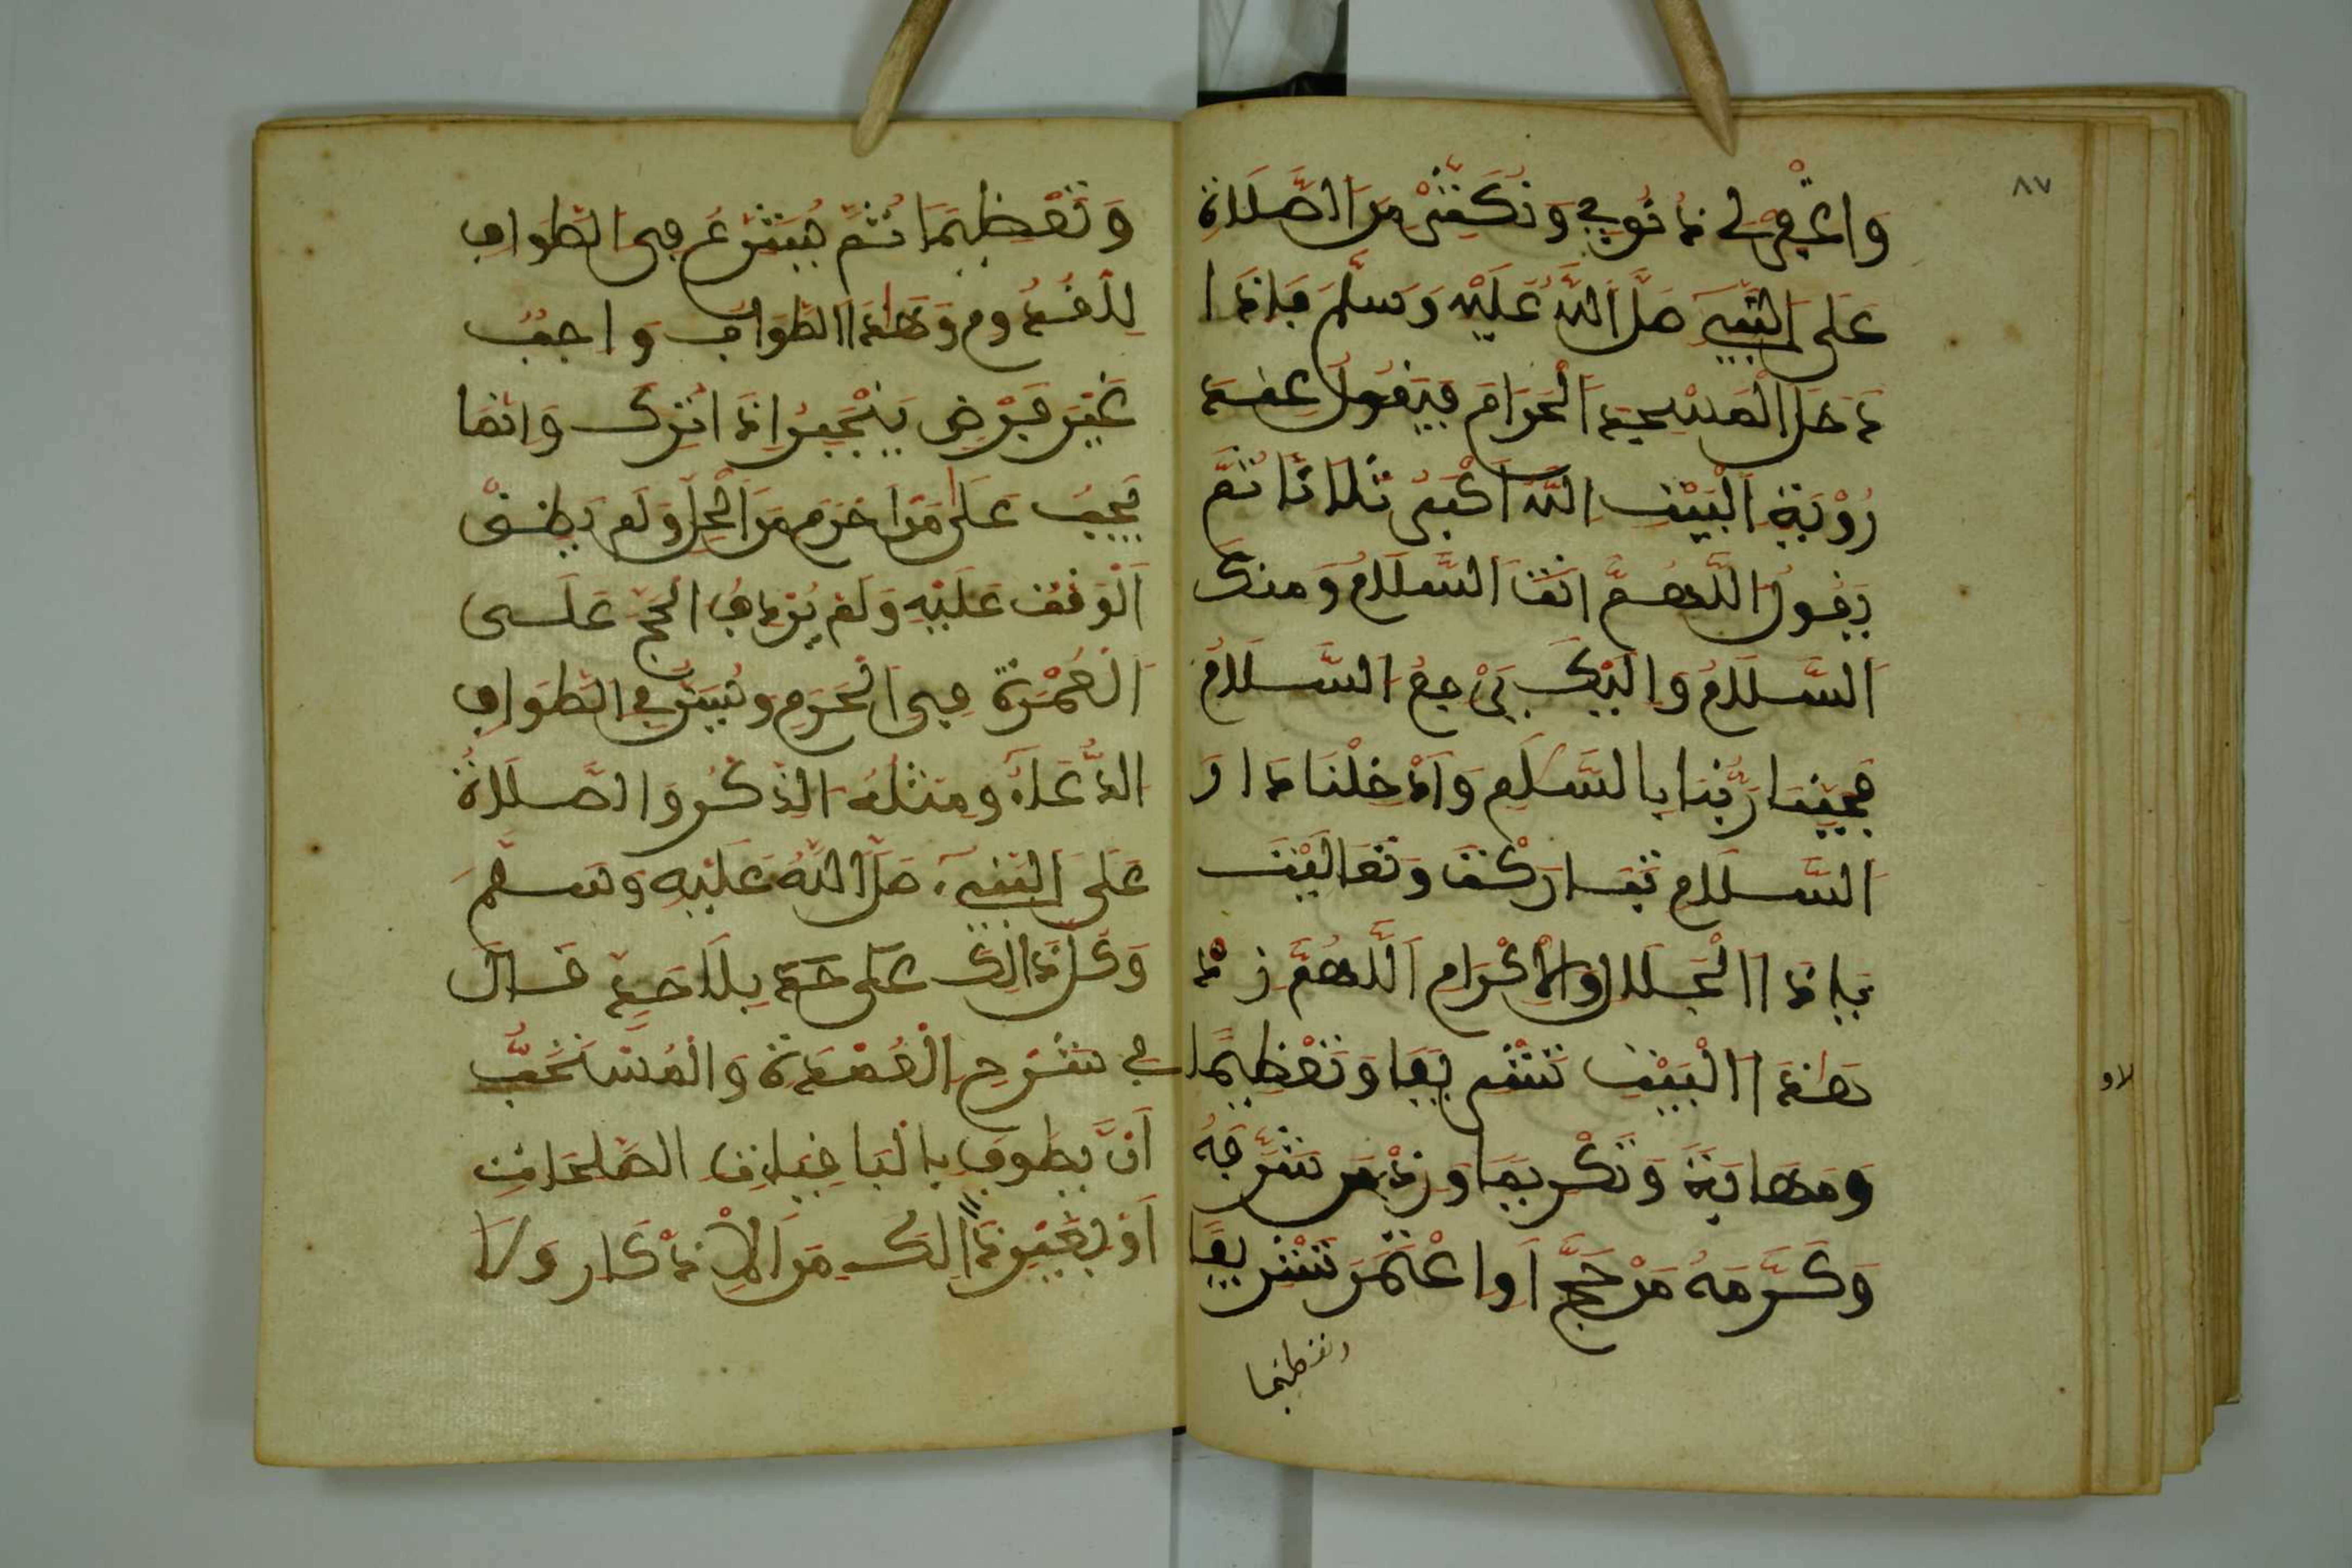 ٨٧
وَاغْفِرْ لِي ذُنُوبِي وَتُكْثِرُ مِنَ الصَّلَاةِ
عَلَى النَّبِيِّ صَلَّى اللهُ عَلَيْهِ وَسَلَّمَ فَإِذَا
دَخَلَ الْمَسْجِدَ الْحَرَامَ فَيَقُولُ عِنْدَ
رُؤْيَةِ الْبَيْتِ اللهُ أَكْبَرُ ثَلَاثًا ثُمَّ
يَقُولُ اللَّهُمَّ أَنْتَ السَّلَامُ وَمِنْكَ
السَّلَامُ وَإِلَيْكَ يَرْجِعُ السَّلَامُ
فَحَيِّنَا رَبَّنَا بِالسَّلَامِ وَأَدْخِلْنَا دَارَ
السَّلَامِ تَبَارَكْتَ وَتَعَالَيْتَ
يَا ذَا الْجَلَالِ وَالْإِكْرَامِ اللَّهُمَّ زِدْ
هَذَا الْبَيْتَ تَشْرِيفًا وَتَعْظِيمًا
وَمَهَابَةً وَتَكْرِيمًا وَزِدْ مَن شَرَّفَهُ
وَكَرَّمَهُ مَنْ حَجَّ أَوِ اعْتَمَرَ تَشْرِيفًا
وتعظيما
وَتَعْظِيمًا ثُمَّ يَشْرَعُ فِي الطَّوَافِ
لِلْقُدُومِ وَهَذَا الطَّوَافُ وَاجِبٌ
غَيْرُ فَرْضٍ يَنْجَبِرُ إِذَا تُرِكَ وَإِنَّمَا
يَجِبُ عَلَى مَنْ أَحْرَمَ مِنَ الْحِلِّ وَلَمْ يَضِقْ
الْوَقْتُ عَلَيْهِ وَلَمْ يُرْدِفِ الْحَجَّ عَلَى
الْعُمْرَةِ فِي الْحَرَمِ وَسُنَنُ الطَّوَافِ
الدُّعَاءُ وَمِثْلُهُ الذِّكْرُ وَالصَّلَاةُ
عَلَى النَّبِيِّ صَلَّى اللهُ عَلَيْهِ وَسَلَّمَ
وَكُلُّ ذَلِكَ عَلَى حَدٍّ بِلَا حَدٍّ قَالَ
فِي شَرْحِ الْعُمْدَةِ وَالْمُسْتَحَبُّ
أَنْ يَطُوفَ بِالْبَاقِيَاتِ الصَّالِحَاتِ
أَوْ بِغَيْرِ ذَلِكَ مِنَ الْأَذْكَارِ وَلَا